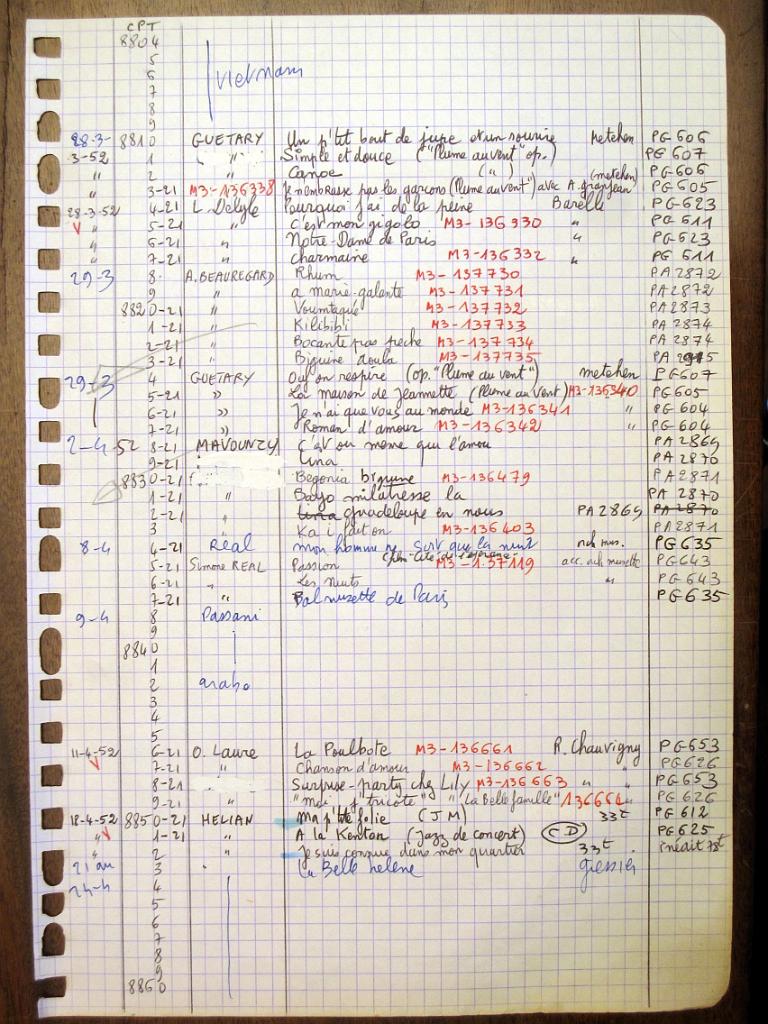 CPT
8804
5
6 Vietnam
7
8
9
28-3- 8810 GUETARY Un p'tit bout de jupe et un sourire Metehen PG 606
3-52 1 " Simple et douce ("Plume au vent" op.) PG 607
" 2 " Canoe (") (metehen) PG 606
" 3-21 M3-136338 je n'embrasse pas les garçons (Plume au vent) avec A. grandjean PG 605
28-3-52 4-21 L. Delyle Pourquoi j'ai de la peine Barelli PG 623
" 5-21 " C'est mon gigolo M3-136330 " PG 611
" 6-21 " Notre-Dame de Paris " PG 623
7-21 " Charmaine M3-136332 " PG 611
29-3 8 A. BEAUREGARD Rhum M3-137730 PA 2872
9 " a marie-galante M3-137731 PA 2872
8820-21 " Voumtaque M3-137732 PA 2873
1-21 " Kilibibi M3-137733 PA 2874
2-21 " Bocante pas peche M3-137734 PA 2874
3-21 " Biguine doula M3-137735
29-3 4 GUETARY Ouf on respire (op. "Plume au vent") metehen PG 607
5-21 " La maison de Jeannette (Plume au Vent) M3-136340 PG 605
6-21 " Je n'ai que vous au monde M3-136341 " PG 604
7-21 " Roman d'amour M3-136342 " PG 604
2-4-52 8-21 MAVOUNZY c'est ou meme qui l'amou PA 2869
9-21 Lina PA 2870
8830-21 Begonia biguine M3-136479 PA 2871
1-21 " Bayo milatresse la PA 2870
2-21 " Lina guadeloupe en nous PA 2869 PA 2870
3 " Ka i fait on M3-136403 PA 2871
8-4 4-21 Real mon homme ne sort que la nuit ach mus. PG 635
5-21 Simone REAL Passion (film cité de l'espérance) M3-137119 acc. ach musette PG 643
6-21 " Les Nuits " PG 643
7-21 " Bal musette de Paris PG 635
9-4 8 Passani
9
8840
1
2 arabo
3
4
5
11-4-52 6-21 O. Laure La Poulbote M3-136661 R. Chauvigny PG 653
7-21 " Chanson d'amour M3-136662 " PG 626
8-21 Surprise-party chez Lily M3-136663 " " PG 653
9-21 " "moi j'tricote" "La Belle famille" 136664 " PG 626
18-4-52 8850-21 HELIAN Ma p'tite folie (JM) 33t PG 612
" 1-21 " A la Kenton (Jazz de concert) (CD) PG 625
" 2 " Je suis connue dans mon quartier 33t. inédit 78t
21 av 3 La Belle helene gressier
24-4 4
5
6
7
8
9
8860